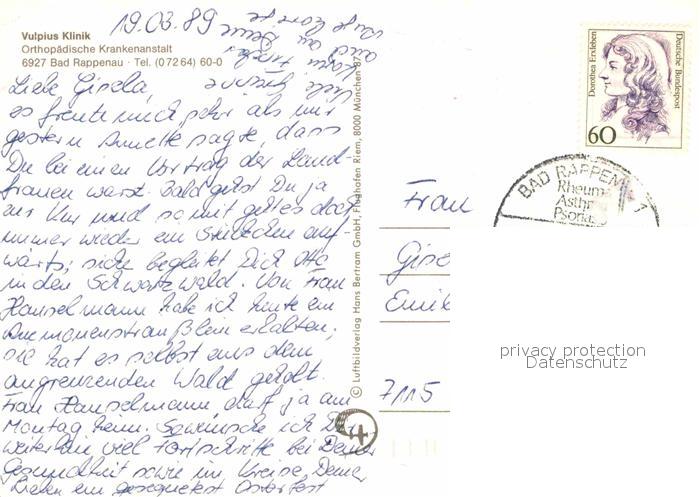 Vulpius Klinik
Orthopädische Krankenanstalt
6927 Bad Rappenau · Tel. (07264) 60-0
19.03.89
Liebe Gisela,
es freute mich sehr als mir
gestern Annette sagte, dass
Du bei einem Vortrag der Land-
frauen warst. Bald gehst Du ja
zur Kur und somit geht es doch
immer wieder ein Stückchen auf-
wärts; sicher begleitet Dich Otto
in den Schwarzwald. Von Frau
Hanselmann habe ich heute ein
Anemonensträußlein erhalten;
sie hat es selbst aus dem
angrenzenden Wald geholt.
Frau Hanselmann darf ja am
Montag heim. So wünsche ich Dir
weiterhin viel Fortschritte bei Deiner
Gesundheit sowie im Kreise Deiner
Lieben ein gesegnetes Osterfest
© Luftbildverlag Hans Bertram GmbH, Flughafen Riem, 8000 München 87
Dorothea Erxleben
Deutsche Bundespost
60
BAD RAPPEN
Rheum
Asth
Psoria
1
Frau
Gise
Emil
7115
privacy protection
Datenschutz